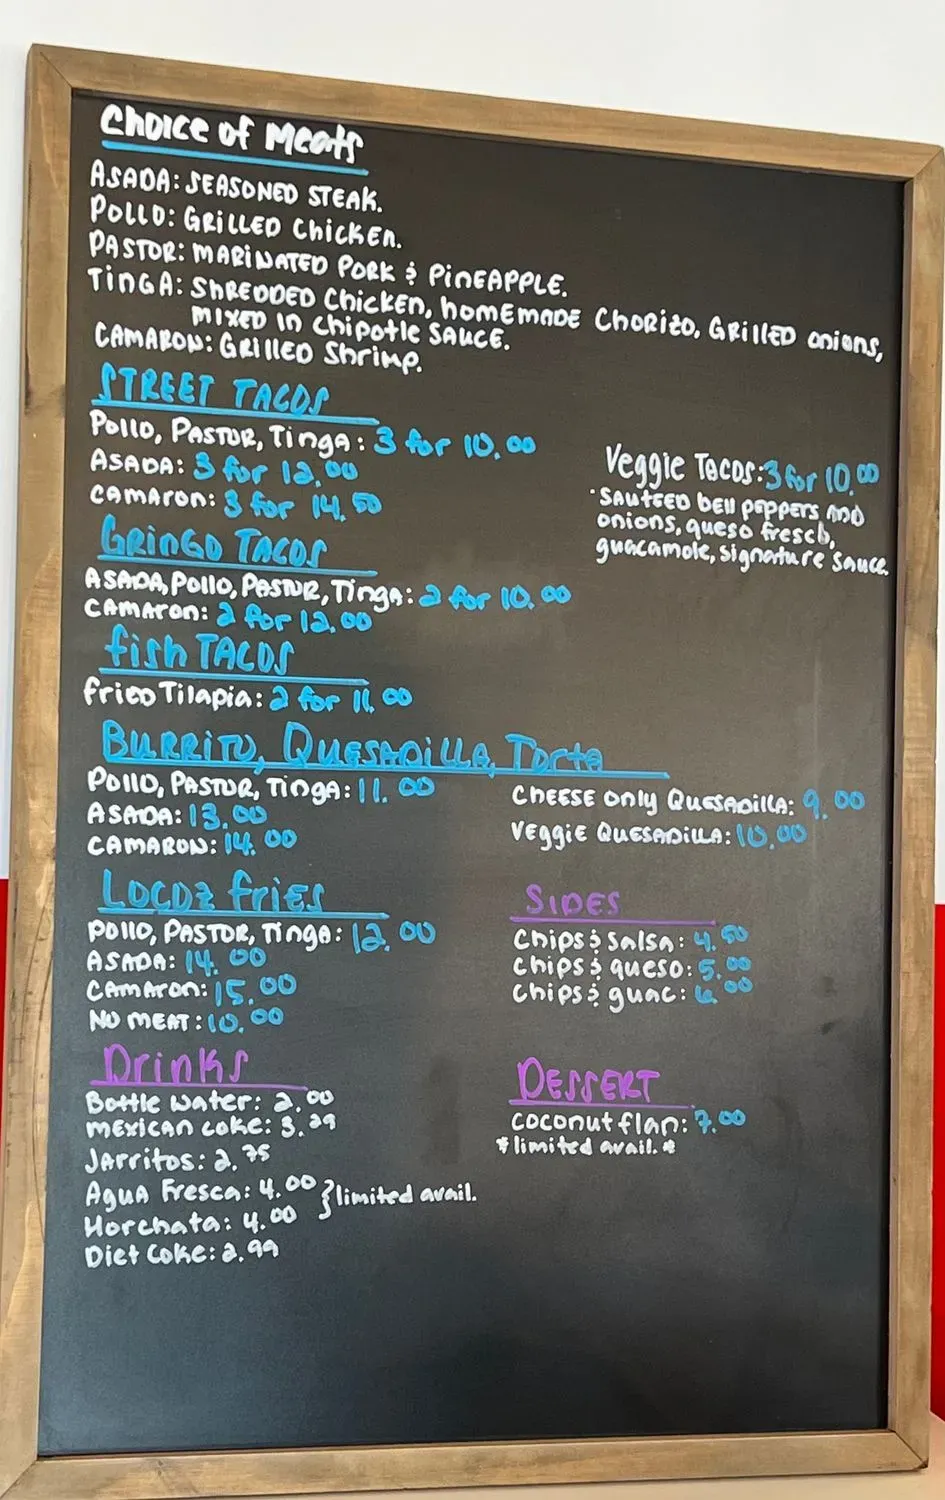 Choice of Meats
ASADA: SEASONED STEAK.
POLLO: GRILLED CHICKEN.
PASTOR: MARINATED PORK & PINEAPPLE.
TINGA: SHREDDED CHICKEN, HOMEMADE CHORIZO, GRILLED ONIONS,
MIXED IN CHIPOTLE SAUCE.
CAMARON: GRILLED SHRIMP.
STREET TACOS
Pollo, PASTOR, Tinga: 3 for 10.00
ASADA: 3 for 12.00
CAMARON: 3 for 14.50
Veggie Tacos: 3 for 10.00
·SAUTEED bell peppers AND
onions, queso fresco,
guacamole, signature sauce.
GRINGO TACOS
ASADA, Pollo, PASTOR, Tinga: 2 for 10.00
CAMARON: 2 for 12.00
fish TACOS
FRIED Tilapia: 2 for 11.00
BURRITO, QUESADILLA, Torta
Pollo, PASTOR, TINGA: 11.00
ASADA: 13.00
CAMARON: 14.00
CHEESE only QUESADILLA: 9.00
Veggie QUESADILLA: 10.00
LOCOZ fries
Pollo, PASTOR, Tinga: 12.00
ASADA: 14.00
CAMARON: 15.00
NO MEAT: 10.00
SIDES
Chips & Salsa: 4.50
Chips & queso: 5.00
Chips & guac: 6.00
Drinks
Bottle Water: 2.00
MEXICAN COKE: 3.29
Jarritos: 2.75
Agua Fresca: 4.00 } limited avail.
Horchata: 4.00
Diet Coke: 2.99
DESSERT
COCONUT flan: 7.00
*limited avail.*